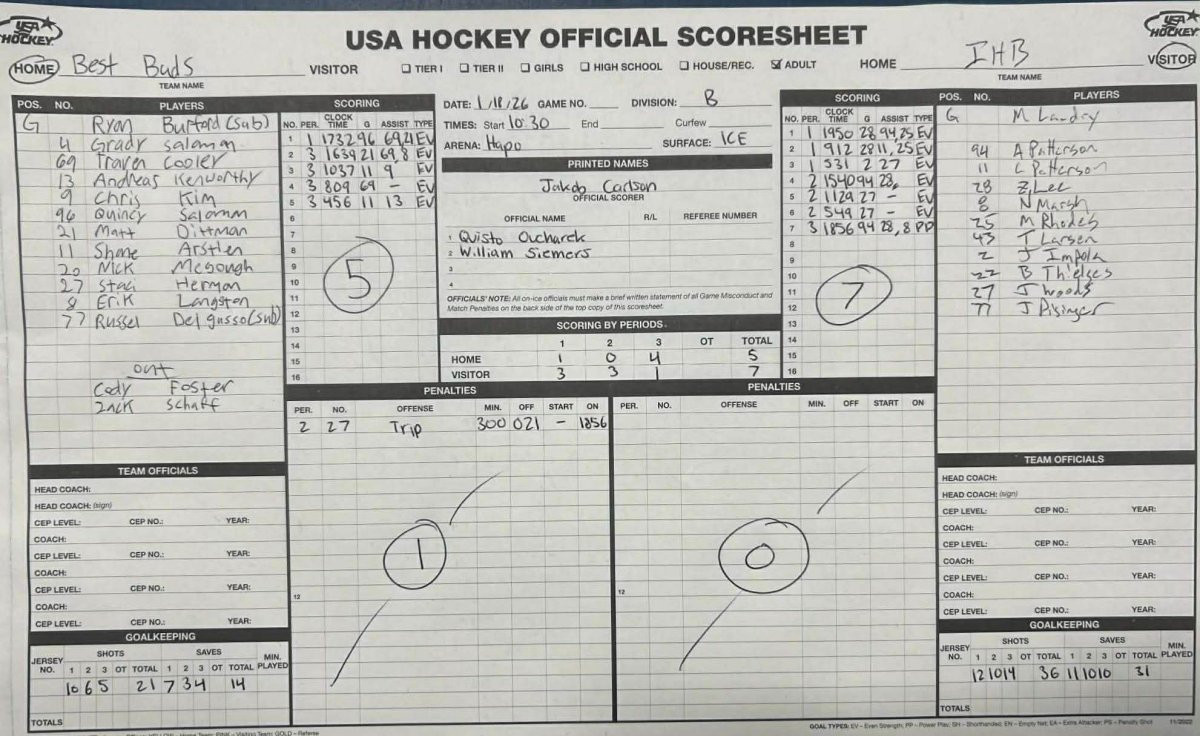 USA HOCKEY
USA HOCKEY OFFICIAL SCORESHEET
USA HOCKEY
HOME Best Buds VISITOR ☐ TIER I ☐ TIER II ☐ GIRLS ☐ HIGH SCHOOL ☐ HOUSE/REC. ☑ ADULT HOME IHB VISITOR
TEAM NAME TEAM NAME
POS. NO. PLAYERS
G Ryan Burford (sub)
4 Grady Salaman
69 Traven Cooler
13 Andreas Kenworthy
9 Chris Kim
96 Quincy Salamm
21 Matt Dittman
11 Shane Arstien
20 Nick Mcgough
27 Staci Hermon
8 Erik Langston
77 Russel Delgusso (sub)
out
Cody Foster
Zack Schaff
SCORING
NO. PER. CLOCK TIME G ASSIST TYPE
1 1 1732 96 69,21 EV
2 3 1639 21 69,8 EV
3 3 1037 11 9 EV
4 3 809 69 - EV
5 3 456 11 13 EV
6
7
8
9
10
11
12
13
14
15
16
5
DATE: 1/18/26 GAME NO. DIVISION: B
TIMES: Start 10:30 End Curfew
ARENA: Hapo SURFACE: ICE
PRINTED NAMES
Jakob Carlson
OFFICIAL SCORER
OFFICIAL NAME R/L REFEREE NUMBER
1 Quisto Ocharek
2 William Siemers
3
4
OFFICIALS' NOTE: All on-ice officials must make a brief written statement of all Game Misconduct and
Match Penalties on the back side of the top copy of this scoresheet.
SCORING BY PERIODS
1 2 3 OT TOTAL
HOME 1 0 4 5
VISITOR 3 3 1 7
SCORING
NO. PER. CLOCK TIME G ASSIST TYPE
1 1 1950 28 94,25 EV
2 1 912 28 11,25 EV
3 1 531 2 27 EV
4 2 1540 94 28, EV
5 2 1129 27 - EV
6 2 549 27 - EV
7 3 1856 94 28,8 PP
8
9
10
11
12
13
14
15
16
7
POS. NO. PLAYERS
G M Landry
94 A Patterson
11 L Patterson
28 Z Lee
8 N Marsh
25 M Rhodes
43 T Larsen
2 J Impola
22 B Thielges
27 J Woods
77 J Pisinger
PENALTIES
PER. NO. OFFENSE MIN. OFF START ON
2 27 Trip 300 021 - 1856
1
12
PENALTIES
PER. NO. OFFENSE MIN. OFF START ON
0
12
TEAM OFFICIALS
HEAD COACH:
HEAD COACH: (sign)
CEP LEVEL: CEP NO.: YEAR:
COACH:
CEP LEVEL: CEP NO.: YEAR:
COACH:
CEP LEVEL: CEP NO.: YEAR:
COACH:
CEP LEVEL: CEP NO.: YEAR:
GOALKEEPING
JERSEY NO. SHOTS 1 2 3 OT TOTAL SAVES 1 2 3 OT TOTAL MIN. PLAYED
10 6 5 21 7 3 4 14
TOTALS
TEAM OFFICIALS
HEAD COACH:
HEAD COACH: (sign)
CEP LEVEL: CEP NO.: YEAR:
COACH:
CEP LEVEL: CEP NO.: YEAR:
COACH:
CEP LEVEL: CEP NO.: YEAR:
COACH:
CEP LEVEL: CEP NO.: YEAR:
GOALKEEPING
JERSEY NO. SHOTS 1 2 3 OT TOTAL SAVES 1 2 3 OT TOTAL MIN. PLAYED
12 10 14 36 11 10 10 31
TOTALS
YELLOW - Home Team; PINK - Visiting Team; GOLD - Referee
GOAL TYPES: EV - Even Strength; PP - Power Play; SH - Shorthanded; EN - Empty Net; EA - Extra Attacker; PS - Penalty Shot 11/2022